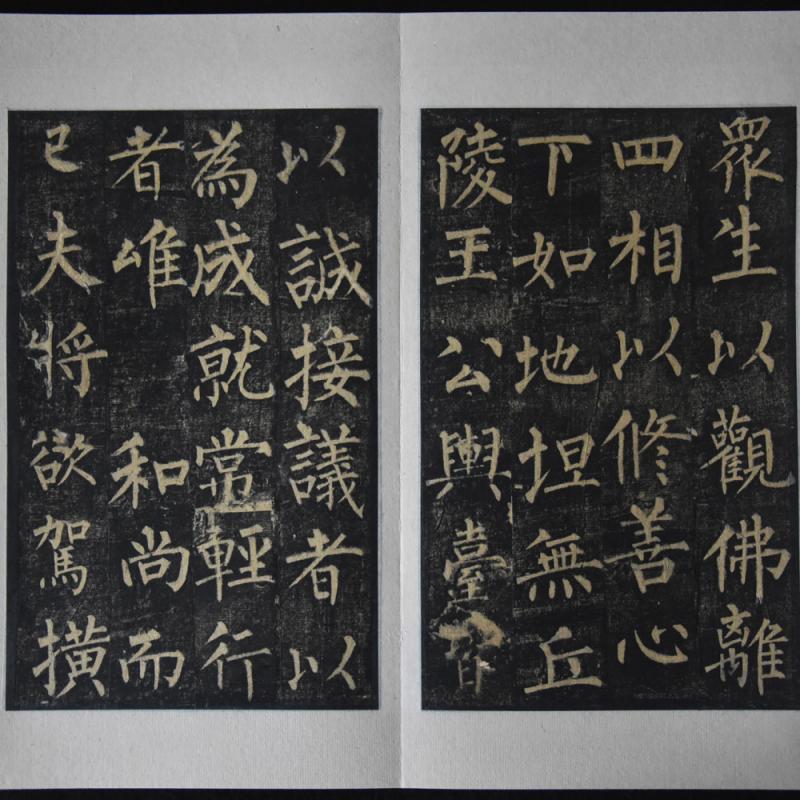 眾生以觀佛離
四相以修善心
下如地坦無丘
陵王公輿臺皆
以誠接議者以
為成就常輕行
者唯和尚而
已夫將欲駕橫